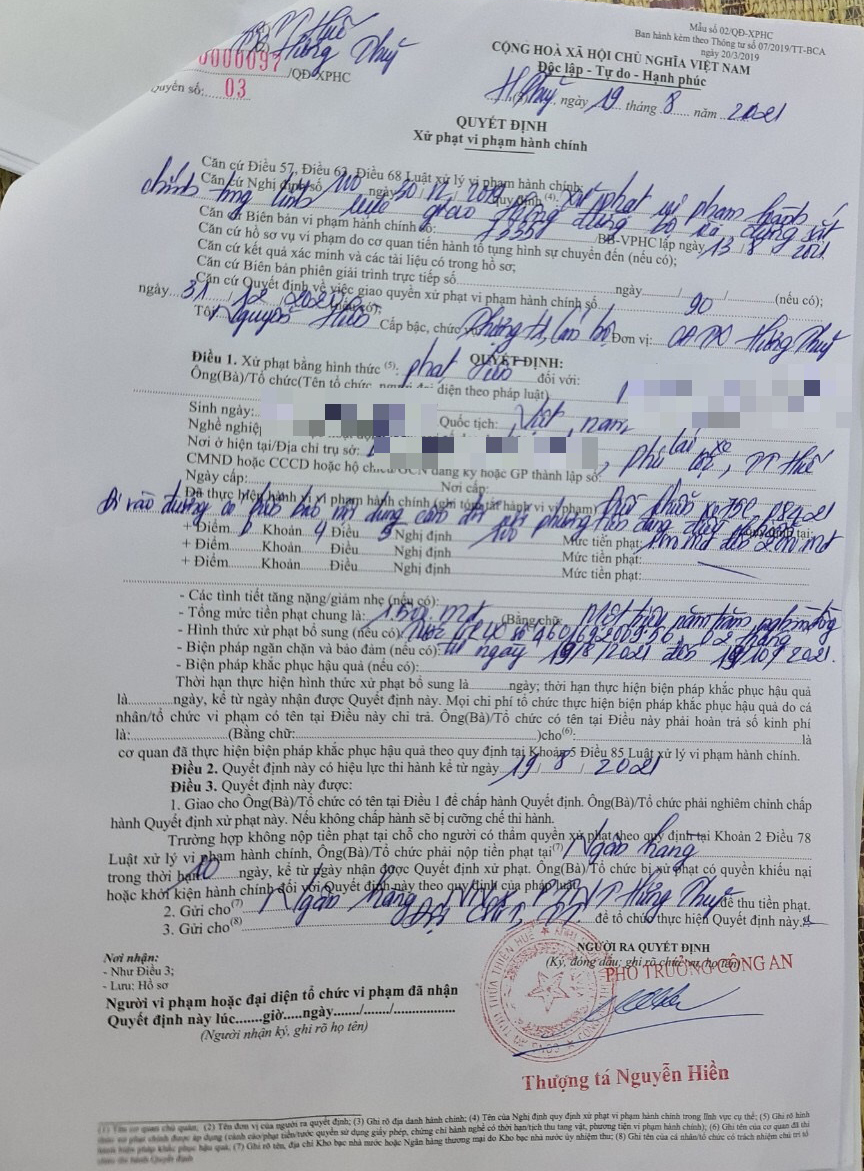 Mẫu số 02/QĐ-XPHC
Ban hành kèm theo Thông tư số 07/2019/TT-BCA
ngày 20/3/2019
CỘNG HOÀ XÃ HỘI CHỦ NGHĨA VIỆT NAM
Độc lập - Tự do - Hạnh phúc
TT Huế
Hương Thuỷ
0000097 /QĐ-XPHC
Quyển số: 03
H.Thuỷ, ngày 19 tháng 8 năm 2021
QUYẾT ĐỊNH
Xử phạt vi phạm hành chính
Căn cứ Điều 57, Điều 63, Điều 68 Luật xử lý vi phạm hành chính;
Căn cứ Nghị định số 100 ngày 30/12/2019 quy định (4): xử phạt vi phạm hành
chính trong lĩnh vực giao thông đường bộ và đường sắt
Căn cứ Biên bản vi phạm hành chính số: BB-VPHC lập ngày 13/8/2021
Căn cứ hồ sơ vụ vi phạm do cơ quan tiến hành tố tụng hình sự chuyển đến (nếu có);
Căn cứ kết quả xác minh và các tài liệu có trong hồ sơ;
Căn cứ Biên bản phiên giải trình trực tiếp số ngày / / (nếu có);
Căn cứ Quyết định về việc giao quyền xử phạt vi phạm hành chính số 90
ngày 31/12/2020 (nếu có);
Tôi: Nguyễn Hiền Cấp bậc, chức vụ: Đơn vị: Hương Thuỷ
QUYẾT ĐỊNH:
Điều 1. Xử phạt bằng hình thức (5): phạt tiền đối với:
Ông(Bà)/Tổ chức(Tên tổ chức, người đại diện theo pháp luật)
Sinh ngày: Quốc tịch: Việt nam
Nghề nghiệp: lái xe
Nơi ở hiện tại/Địa chỉ trụ sở: , phú lộc, TT Huế
CMND hoặc CCCD hoặc hộ chiếu/GCN đăng ký hoặc GP thành lập số:
Ngày cấp: Nơi cấp:
Đã thực hiện hành vi vi phạm hành chính (ghi tóm tắt hành vi vi phạm) Điều khiển xe 75C 08421
Đi vào đường có biển báo nội dung cấm đối với phương tiện đang điều khiển quy định tại:
+ Điểm b Khoản 4 Điều 5 Nghị định 100 Mức tiền phạt:
+ Điểm Khoản Điều Nghị định Mức tiền phạt:
+ Điểm Khoản Điều Nghị định Mức tiền phạt:
- Các tình tiết tăng nặng/giảm nhẹ (nếu có):
- Tổng mức tiền phạt chung là: (Bằng chữ: Một triệu năm trăm nghìn đồng
- Hình thức xử phạt bổ sung (nếu có) 02 tháng
- Biện pháp ngăn chặn và bảo đảm (nếu có): Từ ngày 19/8/2021 đến 19/10/2021.
- Biện pháp khắc phục hậu quả (nếu có):
Thời hạn thực hiện hình thức xử phạt bổ sung là ngày; thời hạn thực hiện biện pháp khắc phục hậu quả
là ngày, kể từ ngày nhận được Quyết định này. Mọi chi phí tổ chức thực hiện biện pháp khắc phục hậu quả do cá
nhân/tổ chức vi phạm có tên tại Điều này chi trả. Ông(Bà)/Tổ chức có tên tại Điều này phải hoàn trả số kinh phí
là: (Bằng chữ: )cho(6): là
cơ quan đã thực hiện biện pháp khắc phục hậu quả theo quy định tại Khoản 5 Điều 85 Luật xử lý vi phạm hành chính.
Điều 2. Quyết định này có hiệu lực thi hành kể từ ngày 19/8/2021
Điều 3. Quyết định này được:
1. Giao cho Ông(Bà)/Tổ chức có tên tại Điều 1 để chấp hành Quyết định. Ông(Bà)/Tổ chức phải nghiêm chỉnh chấp
hành Quyết định xử phạt này. Nếu không chấp hành sẽ bị cưỡng chế thi hành.
Trường hợp không nộp tiền phạt tại chỗ cho người có thẩm quyền xử phạt theo quy định tại Khoản 2 Điều 78
Luật xử lý vi phạm hành chính, Ông(Bà)/Tổ chức phải nộp tiền phạt tại(7) Ngân hàng
trong thời hạn 10 ngày, kể từ ngày nhận được Quyết định xử phạt. Ông(Bà)/Tổ chức bị xử phạt có quyền khiếu nại
hoặc khởi kiện hành chính đối với Quyết định này theo quy định của pháp luật.
2. Gửi cho(7) Ngân hàng Hương Thuỷ để thu tiền phạt.
3. Gửi cho(8) để tổ chức thực hiện Quyết định này./.
Nơi nhận:
- Như Điều 3;
- Lưu: Hồ sơ
NGƯỜI RA QUYẾT ĐỊNH
(Ký, đóng dấu; ghi rõ chức vụ, họ tên)
PHÓ TRƯỞNG CÔNG AN
Người vi phạm hoặc đại diện tổ chức vi phạm đã nhận
Quyết định này lúc.......giờ.....ngày......./......./..................
(Người nhận ký, ghi rõ họ tên)
Thượng tá Nguyễn Hiền
(1) Tên cơ quan chủ quản; (2) Tên đơn vị của người ra quyết định; (3) Ghi rõ địa danh hành chính; (4) Tên của Nghị định quy định xử phạt vi phạm hành chính trong lĩnh vực cụ thể; (5) Ghi rõ hình
thức xử phạt chính được áp dụng (cảnh cáo/phạt tiền/tước quyền sử dụng giấy phép, chứng chỉ hành nghề có thời hạn/tịch thu tang vật, phương tiện vi phạm hành chính); (6) Ghi tên của cơ quan đã thi
hành biện pháp khắc phục hậu quả; (7) Ghi rõ tên, địa chỉ Kho bạc nhà nước hoặc Ngân hàng thương mại do Kho bạc nhà nước ủy nhiệm thu; (8) Ghi tên của cá nhân/tổ chức có trách nhiệm chủ trì tổ
chức thi hành Quyết định